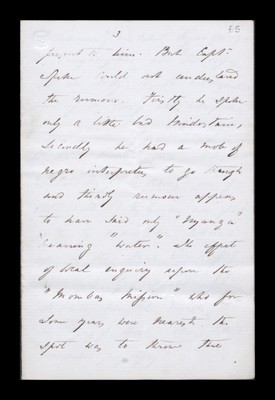 3
65
present to him. But Capt.
Speke could not understand
the rumour. Firstly he spoke
only a little bad Hindostani,
secondly he had a mob of
negro interpreters to go through
and thirdly rumour appears
to have said only "Nyanza"
meaning "water". The effect
of local enquiry upon the
"Mombas Mission" who for
some years were nearest the
spot was to throw the